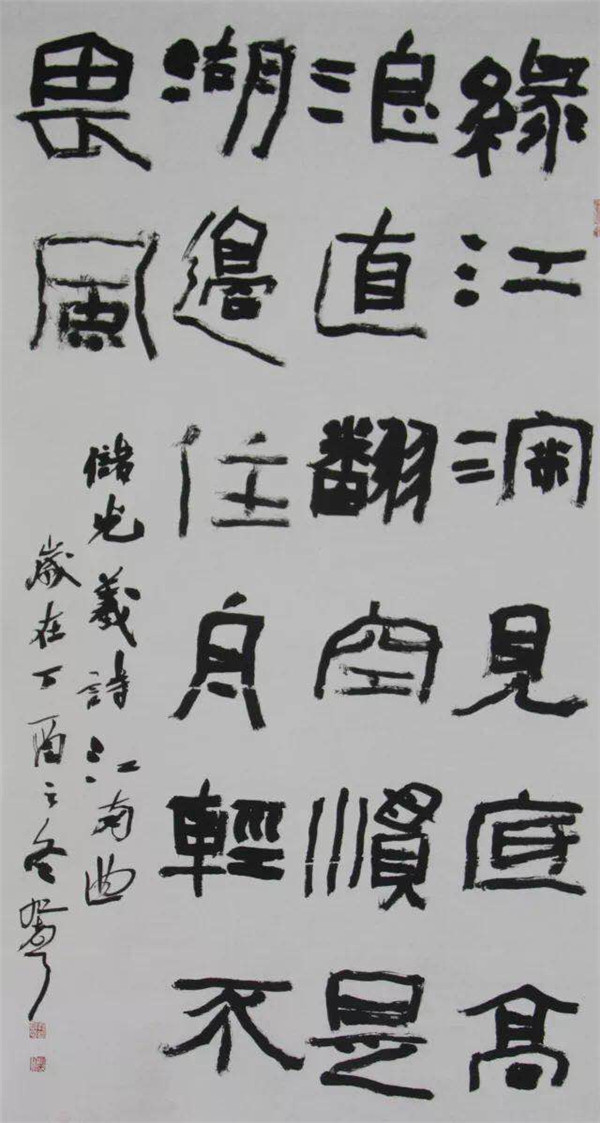 綠江深見底高
浪直翻空慣是
湖邊住舟輕不
畏風
儲光羲詩江南曲
歲在丁酉之冬